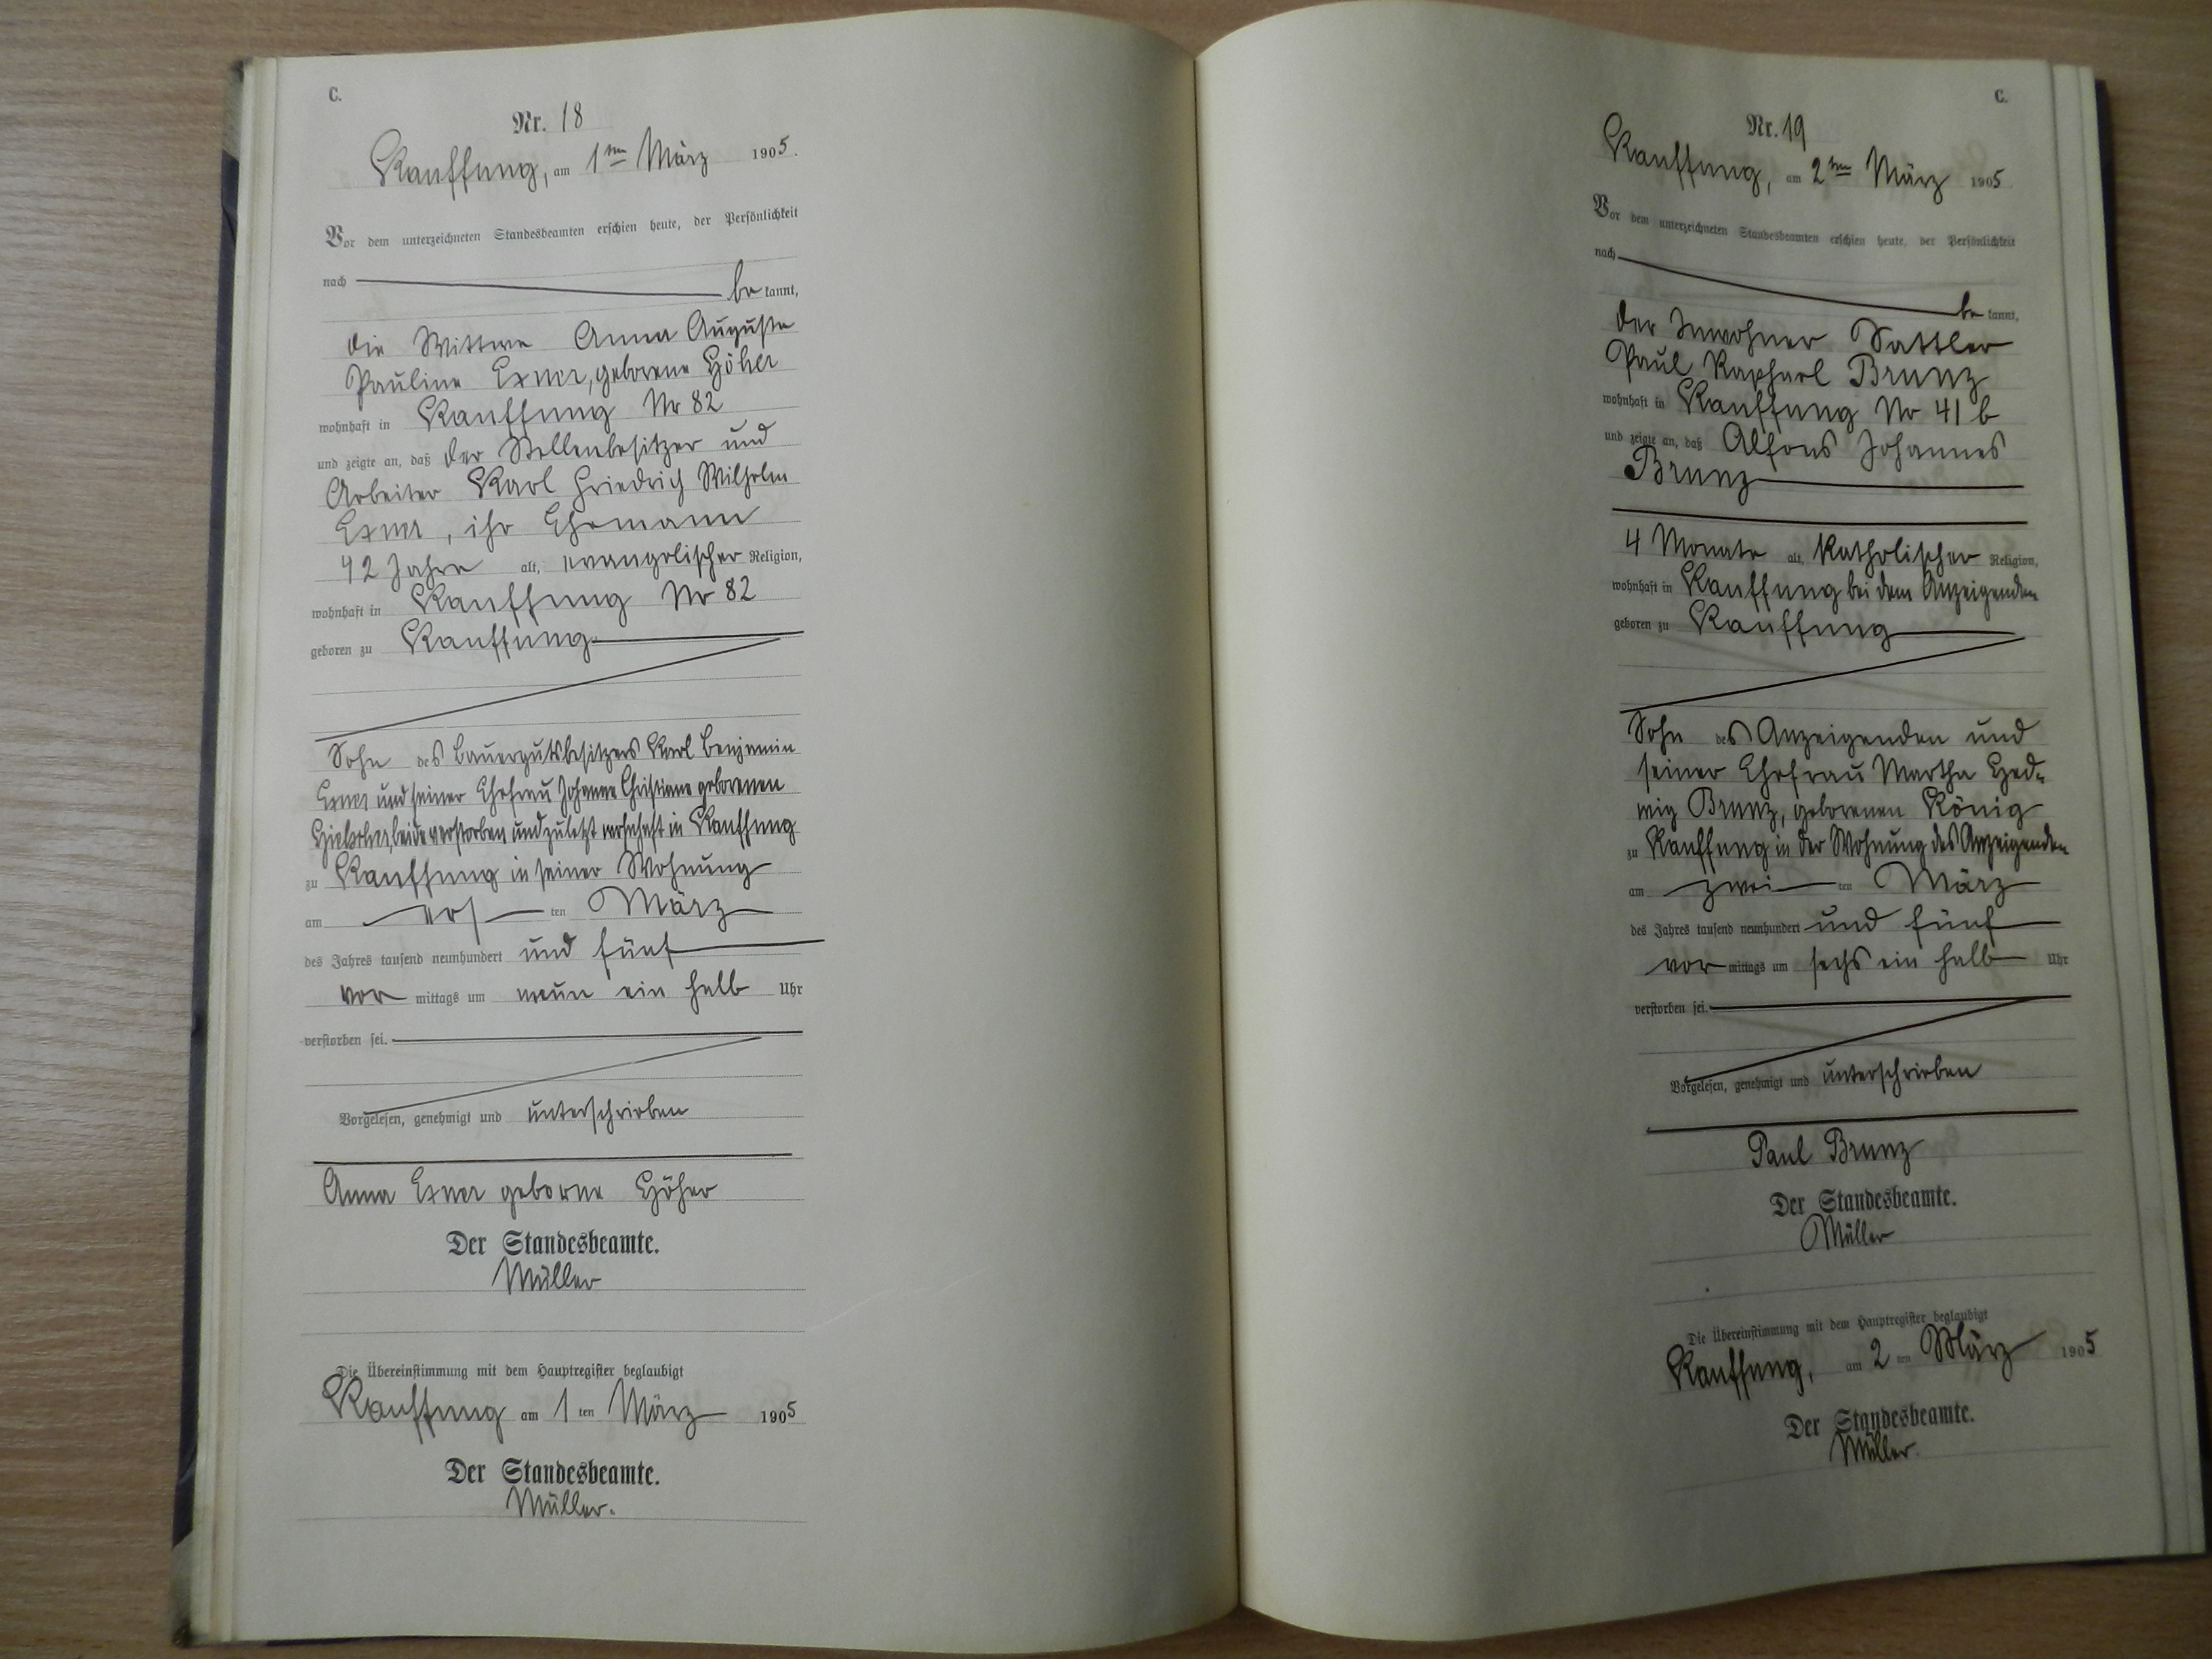 C.
Nr. 18
Kauffung, am 1ten März 1905.
Vor dem unterzeichneten Standesbeamten erschien heute, der Persönlichkeit
nach be kannt,
die Wittwe Anna Auguste
Pauline Exner, geborene Höher
wohnhaft in Kauffung Nr 82
und zeigte an, daß der Stellenbesitzer und
Arbeiter Karl Friedrich Wilhelm
Exner, ihr Ehemann
42 Jahre alt, evangelischer Religion,
wohnhaft in Kauffung Nr 82
geboren zu Kauffung
Sohn des Bauergutsbesitzers Karl Benjamin
Exner und seiner Ehefrau Johanne Christiane geborenen
beide verstorben und zuletzt wohnhaft in Kauffung
zu Kauffung in seiner Wohnung
am ers ten März
des Jahres tausend neunhundert und fünf
vor mittags um neun ein halb Uhr
verstorben sei.
Vorgelesen, genehmigt und unterschrieben
Anna Exner geborne Höher
Der Standesbeamte.
Müller
Die Übereinstimmung mit dem Hauptregister beglaubigt
Kauffung am 1 ten März 1905
Der Standesbeamte.
Müller.
C.
Nr. 19
Kauffung, am 2ten März 1905.
Vor dem unterzeichneten Standesbeamten erschien heute, der Persönlichkeit
nach be kannt,
der Inwohner Sattler
Paul Raphael Brunz
wohnhaft in Kauffung Nr 41 b
und zeigte an, daß Alfons Johannes
Brunz
4 Monate alt, katholischer Religion,
wohnhaft in Kauffung bei dem Anzeigenden
geboren zu Kauffung
Sohn des Anzeigenden und
seiner Ehefrau Martha Hed-
wig Brunz, geborenen König
zu Kauffung in der Wohnung des Anzeigenden
am zwei ten März
des Jahres tausend neunhundert und fünf
vor mittags um sechs ein halb Uhr
verstorben sei.
Vorgelesen, genehmigt und unterschrieben
Paul Brunz
Der Standesbeamte.
Müller
Die Übereinstimmung mit dem Hauptregister beglaubigt
Kauffung, am 2 ten März 1905
Der Standesbeamte.
Müller.